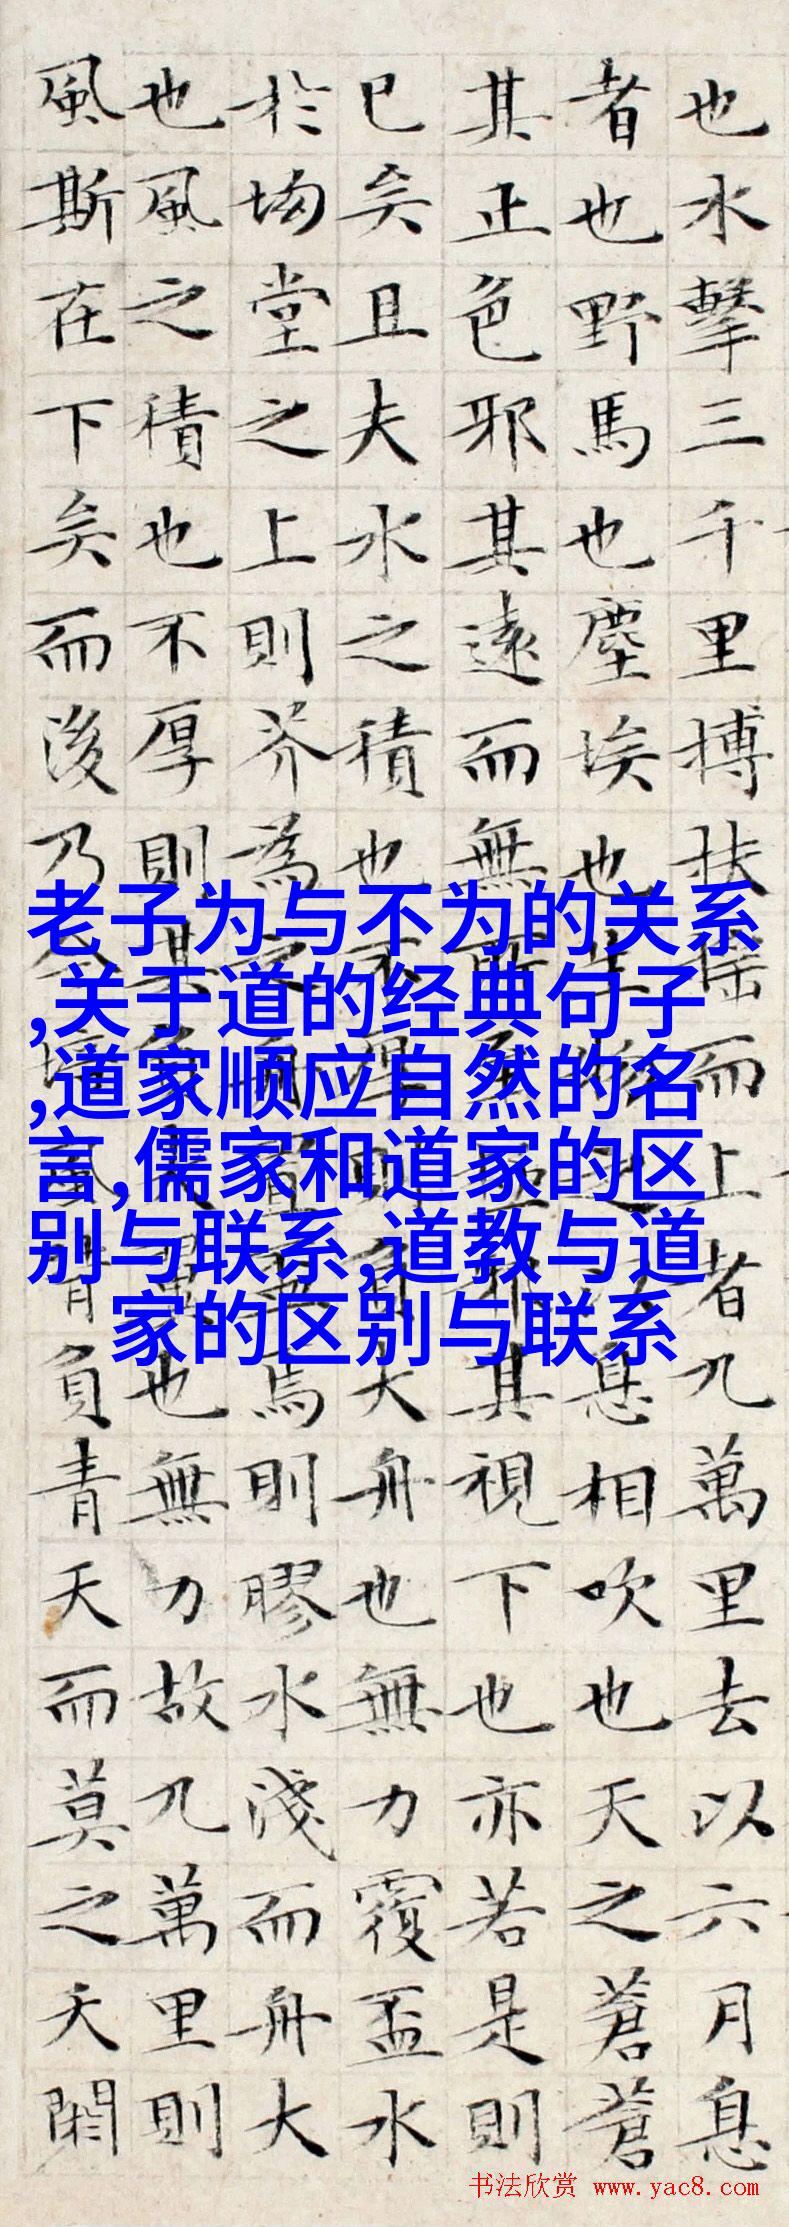 也水擊三千里搏扶搖而上者九萬里去以六月息
者也野馬也塵埃也生物之以息相吹也天之蒼蒼
其正色邪其遠而無所至極邪其視下也亦若是則
已矣且夫水之積也不厚則負大舟也無力覆盃水
於坳堂之上則芥為之舟置盃焉則膠水淺而舟大
也風之積也不厚則其負大翼也無力故九萬里則
風斯在下矣而後乃今培風背負青天而莫之夭閼
老子为与不为的关系
,关于道的经典句子
,道家顺应自然的名
言,儒家和道家的区
别与联系,道教与道
家的区别与联系
书法欣赏 www.yac8.com